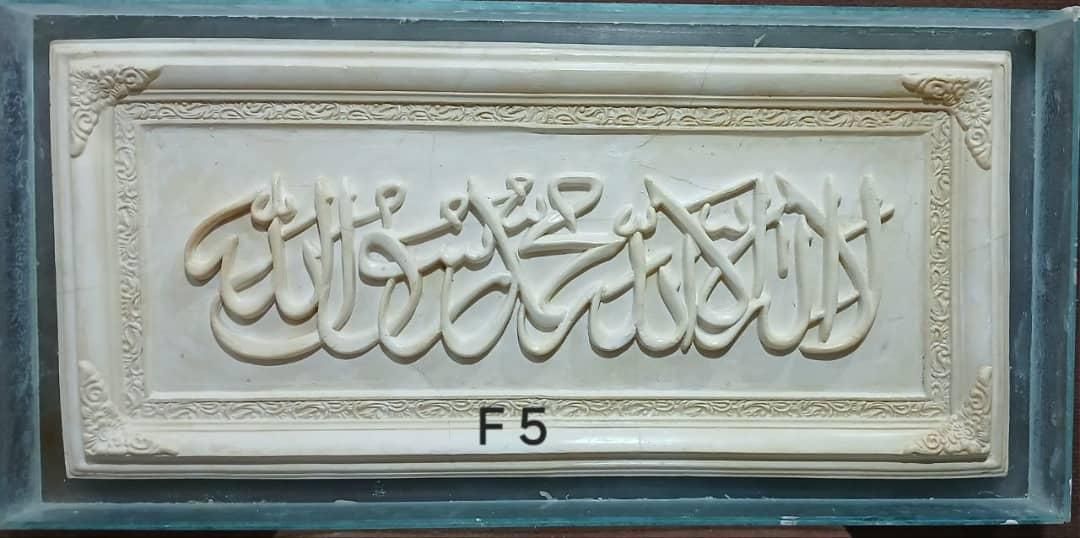 لا اله الا الله محمد رسول الله
F 5